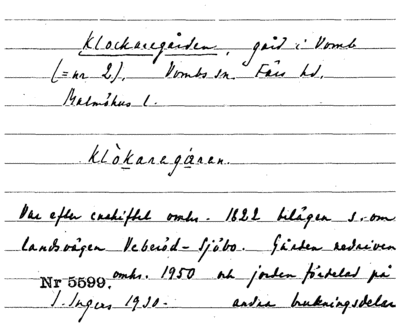 Klockaregården, gård i Vomb
(= nr 2), Vombs sn. Färs hd,
Malmöhus l.
Klòkaregáren.
Var efter enskiftet omkr. 1822 belägen s. om
landsvägen Veberöd - Sjöbo. Gården nedriven
omkr. 1950 och jorden fördelad på
Nr 5599.
I. Ingers 1930. andra brukningsdelar